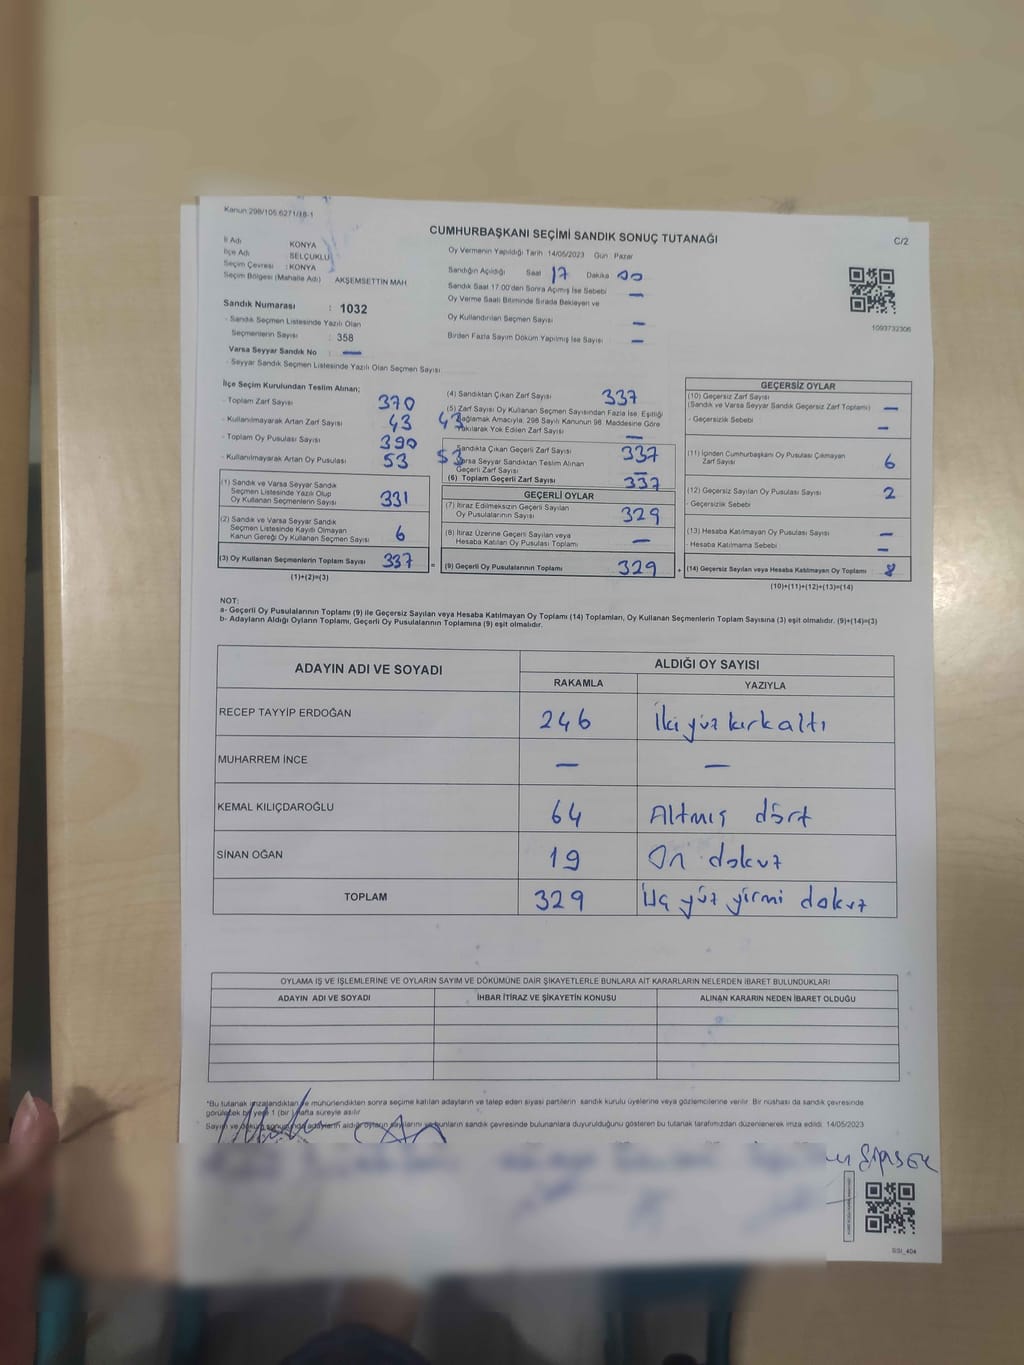 Kanun 298/105 6271/18-1
CUMHURBAŞKANI SEÇİMİ SANDIK SONUÇ TUTANAĞI
C/2
İl Adı KONYA
İlçe Adı SELÇUKLU
Seçim Çevresi : KONYA
Seçim Bölgesi (Mahalle Adı) AKŞEMSETTİN MAH
Oy Vermenin Yapıldığı Tarih 14/05/2023 Gün Pazar
Sandığın Açıldığı Saat 17 Dakika 00
Sandık Saat 17:00'den Sonra Açılmış İse Sebebi —
Oy Verme Saati Bitiminde Sırada Bekleyen ve
Oy Kullandırılan Seçmen Sayısı —
Birden Fazla Sayım Döküm Yapılmış İse Sayısı —
1093732306
Sandık Numarası : 1032
- Sandık Seçmen Listesinde Yazılı Olan
Seçmenlerin Sayısı : 358
Varsa Seyyar Sandık No —
- Seyyar Sandık Seçmen Listesinde Yazılı Olan Seçmen Sayısı
İlçe Seçim Kurulundan Teslim Alınan;
- Toplam Zarf Sayısı 370
- Kullanılmayarak Artan Zarf Sayısı 43 43
- Toplam Oy Pusulası Sayısı 390
- Kullanılmayarak Artan Oy Pusulası 53 53
(1) Sandık ve Varsa Seyyar Sandık
Seçmen Listesinde Yazılı Olup
Oy Kullanan Seçmenlerin Sayısı 331
(2) Sandık ve Varsa Seyyar Sandık
Seçmen Listesinde Kayıtlı Olmayan
Kanun Gereği Oy Kullanan Seçmen Sayısı 6
(3) Oy Kullanan Seçmenlerin Toplam Sayısı 337 =
(1)+(2)=(3)
(4) Sandıktan Çıkan Zarf Sayısı 337
(5) Zarf Sayısı Oy Kullanan Seçmen Sayısından Fazla İse, Eşitliği
Sağlamak Amacıyla; 298 Sayılı Kanunun 98. Maddesine Göre
Yakılarak Yok Edilen Zarf Sayısı —
Sandıkta Çıkan Geçerli Zarf Sayısı 337
Varsa Seyyar Sandıktan Teslim Alınan
Geçerli Zarf Sayısı —
(6) Toplam Geçerli Zarf Sayısı 337
GEÇERLİ OYLAR
(7) İtiraz Edilmeksizin Geçerli Sayılan
Oy Pusulalarının Sayısı 329
(8) İtiraz Üzerine Geçerli Sayılan veya
Hesaba Katılan Oy Pusulası Toplamı —
(9) Geçerli Oy Pusulalarının Toplamı 329 +
GEÇERSİZ OYLAR
(10) Geçersiz Zarf Sayısı
(Sandık ve Varsa Seyyar Sandık Geçersiz Zarf Toplamı) —
- Geçersizlik Sebebi —
(11) İçinden Cumhurbaşkanı Oy Pusulası Çıkmayan
Zarf Sayısı 6
(12) Geçersiz Sayılan Oy Pusulası Sayısı 2
- Geçersizlik Sebebi
(13) Hesaba Katılmayan Oy Pusulası Sayısı —
- Hesaba Katılmama Sebebi —
(14) Geçersiz Sayılan veya Hesaba Katılmayan Oy Toplamı 8
(10)+(11)+(12)+(13)=(14)
NOT:
a- Geçerli Oy Pusulalarının Toplamı (9) ile Geçersiz Sayılan veya Hesaba Katılmayan Oy Toplamı (14) Toplamları, Oy Kullanan Seçmenlerin Toplam Sayısına (3) eşit olmalıdır. (9)+(14)=(3)
b- Adayların Aldığı Oyların Toplamı, Geçerli Oy Pusulalarının Toplamına (9) eşit olmalıdır.
ADAYIN ADI VE SOYADI
ALDIĞI OY SAYISI
RAKAMLA YAZIYLA
RECEP TAYYİP ERDOĞAN 246 İki yüz kırk altı
MUHARREM İNCE — —
KEMAL KILIÇDAROĞLU 64 Altmış dört
SİNAN OĞAN 19 On dokuz
TOPLAM 329 Üç yüz yirmi dokuz
OYLAMA İŞ VE İŞLEMLERİNE VE OYLARIN SAYIM VE DÖKÜMÜNE DAİR ŞİKAYETLERLE BUNLARA AİT KARARLARIN NELERDEN İBARET BULUNDUKLARI
ADAYIN ADI VE SOYADI İHBAR İTİRAZ VE ŞİKAYETİN KONUSU ALINAN KARARIN NEDEN İBARET OLDUĞU
*Bu tutanak imzalandıktan ve mühürlendikten sonra seçime katılan adayların ve talep eden siyasi partilerin sandık kurulu üyelerine veya gözlemcilerine verilir. Bir nüshası da sandık çevresinde
görülecek bir yere 1 (bir) hafta süreyle asılır
Sayım ve döküm sonucunda adayların aldığı oyların sayılarını ve bunların sandık çevresinde bulunanlara duyurulduğunu gösteren bu tutanak tarafımızdan düzenlenerek imza edildi. 14/05/2023
SSI_404